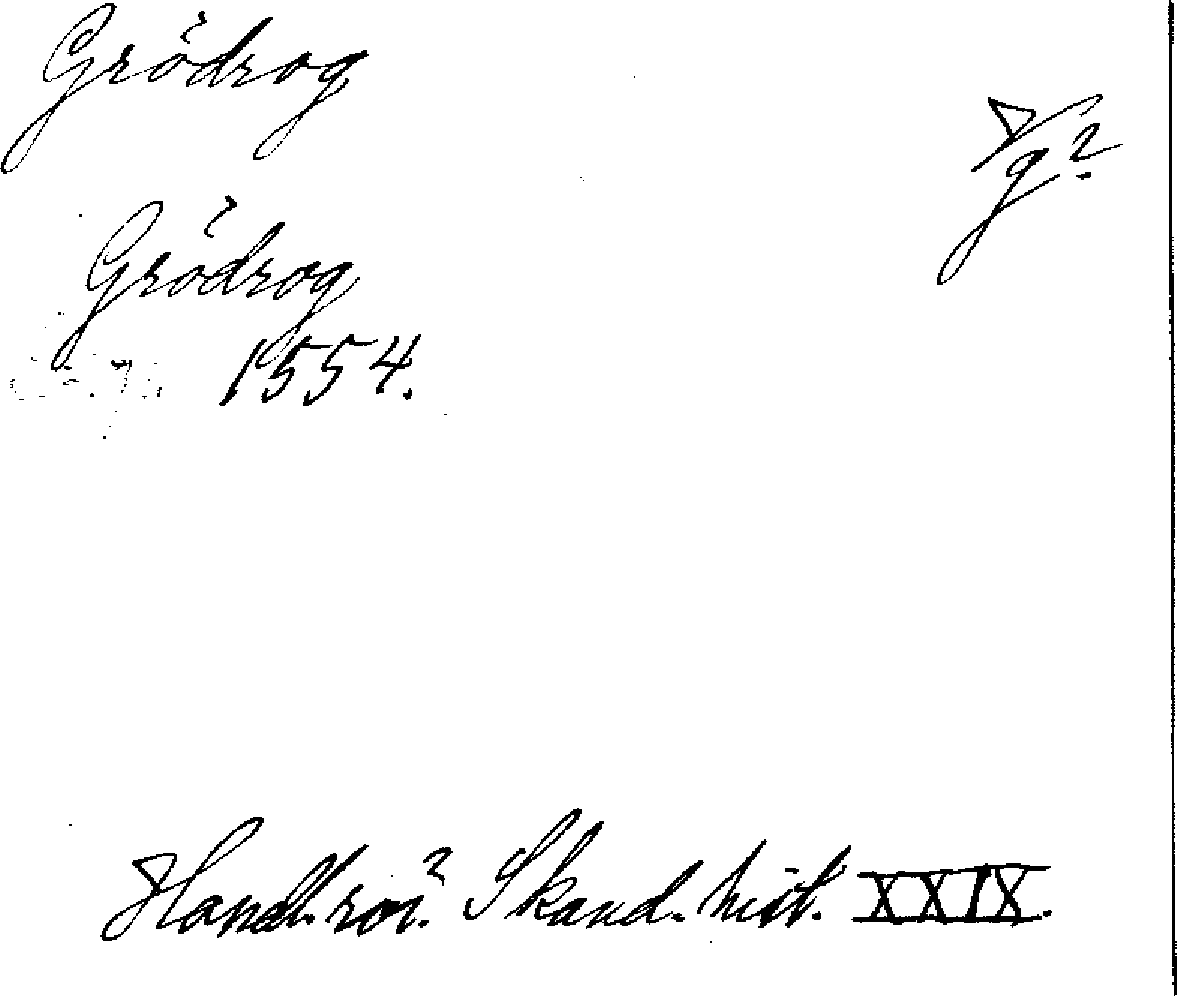 Grödrog
Grödrog
1554.
Handl. rör. Skand. hist. XXIX.